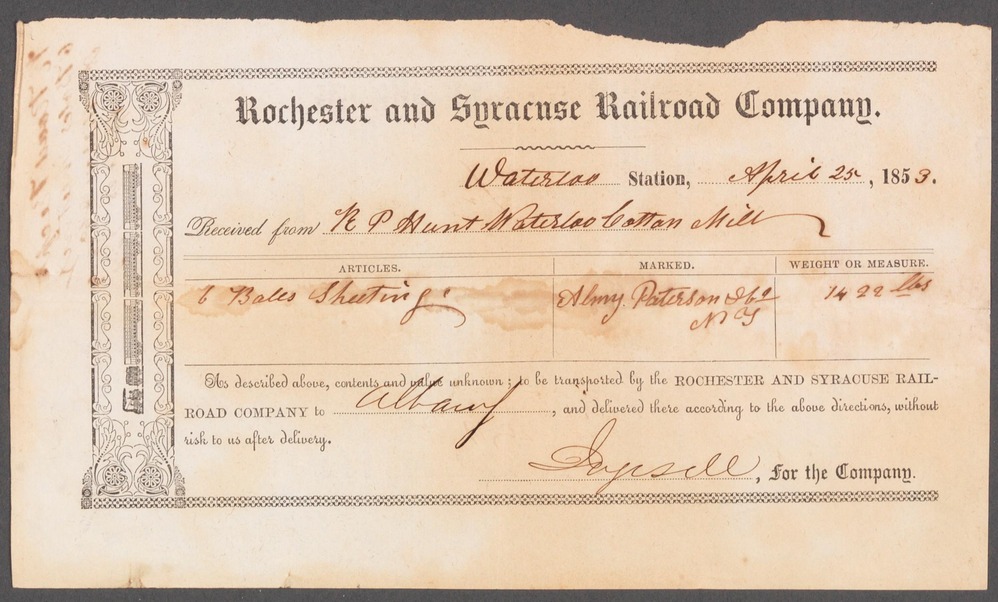 Rochester and Syracuse Railroad Company.
Waterloo Station, April 25, 1853.
Received from R P Hunt Waterloo Cotton Mill
ARTICLES. MARKED. WEIGHT OR MEASURE.
6 Bales Sheeting Almy Paterson & Co 1422 lbs
N Y
As described above, contents and value unknown; to be transported by the ROCHESTER AND SYRACUSE RAIL-
ROAD COMPANY to Albany, and delivered there according to the above directions, without
risk to us after delivery.
, For the Company.